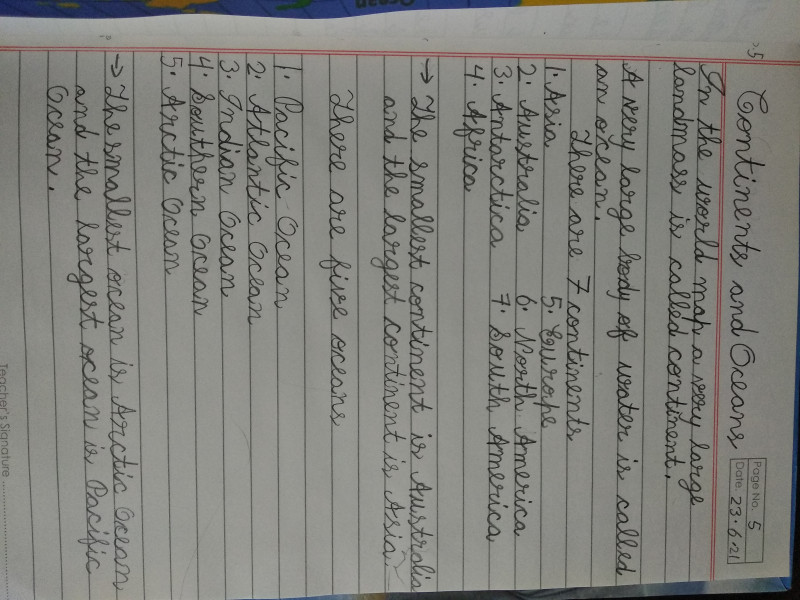 Ocean
Page No. 5
Date 23.6.21
Continents and Oceans
In the world map a very large
landmass is called continent.
A very large body of water is called
an ocean.
There are 7 continents
1. Asia 5. Europe
2. Australia 6. North America
3. Antarctica 7. South America
4. Africa
→ The smallest continent is Australia
and the largest continent is Asia.
There are five oceans
1. Pacific Ocean
2. Atlantic Ocean
3. Indian Ocean
4. Southern Ocean
5. Arctic Ocean
→ The smallest ocean is Arctic Ocean
and the largest ocean is Pacific
Ocean.
Teacher's Signature